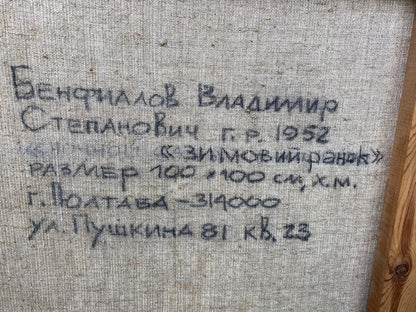 Бенфиалов Владимир
Степанович г.р. 1952
«зимовий ранок»
размер 100×100 см, х.м.
г. Полтава – 314000
ул. Пушкина 81 кв. 23